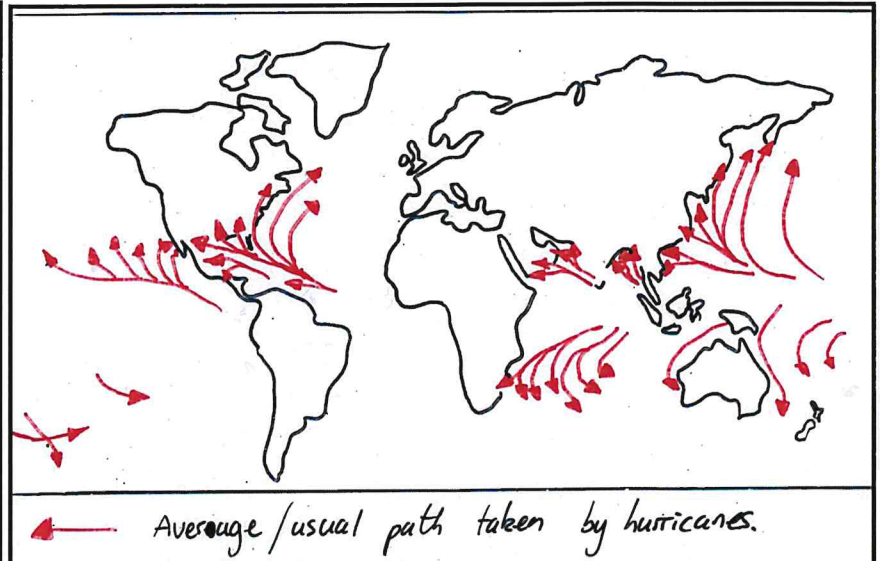 Averauge/usual path taken by hurricanes.